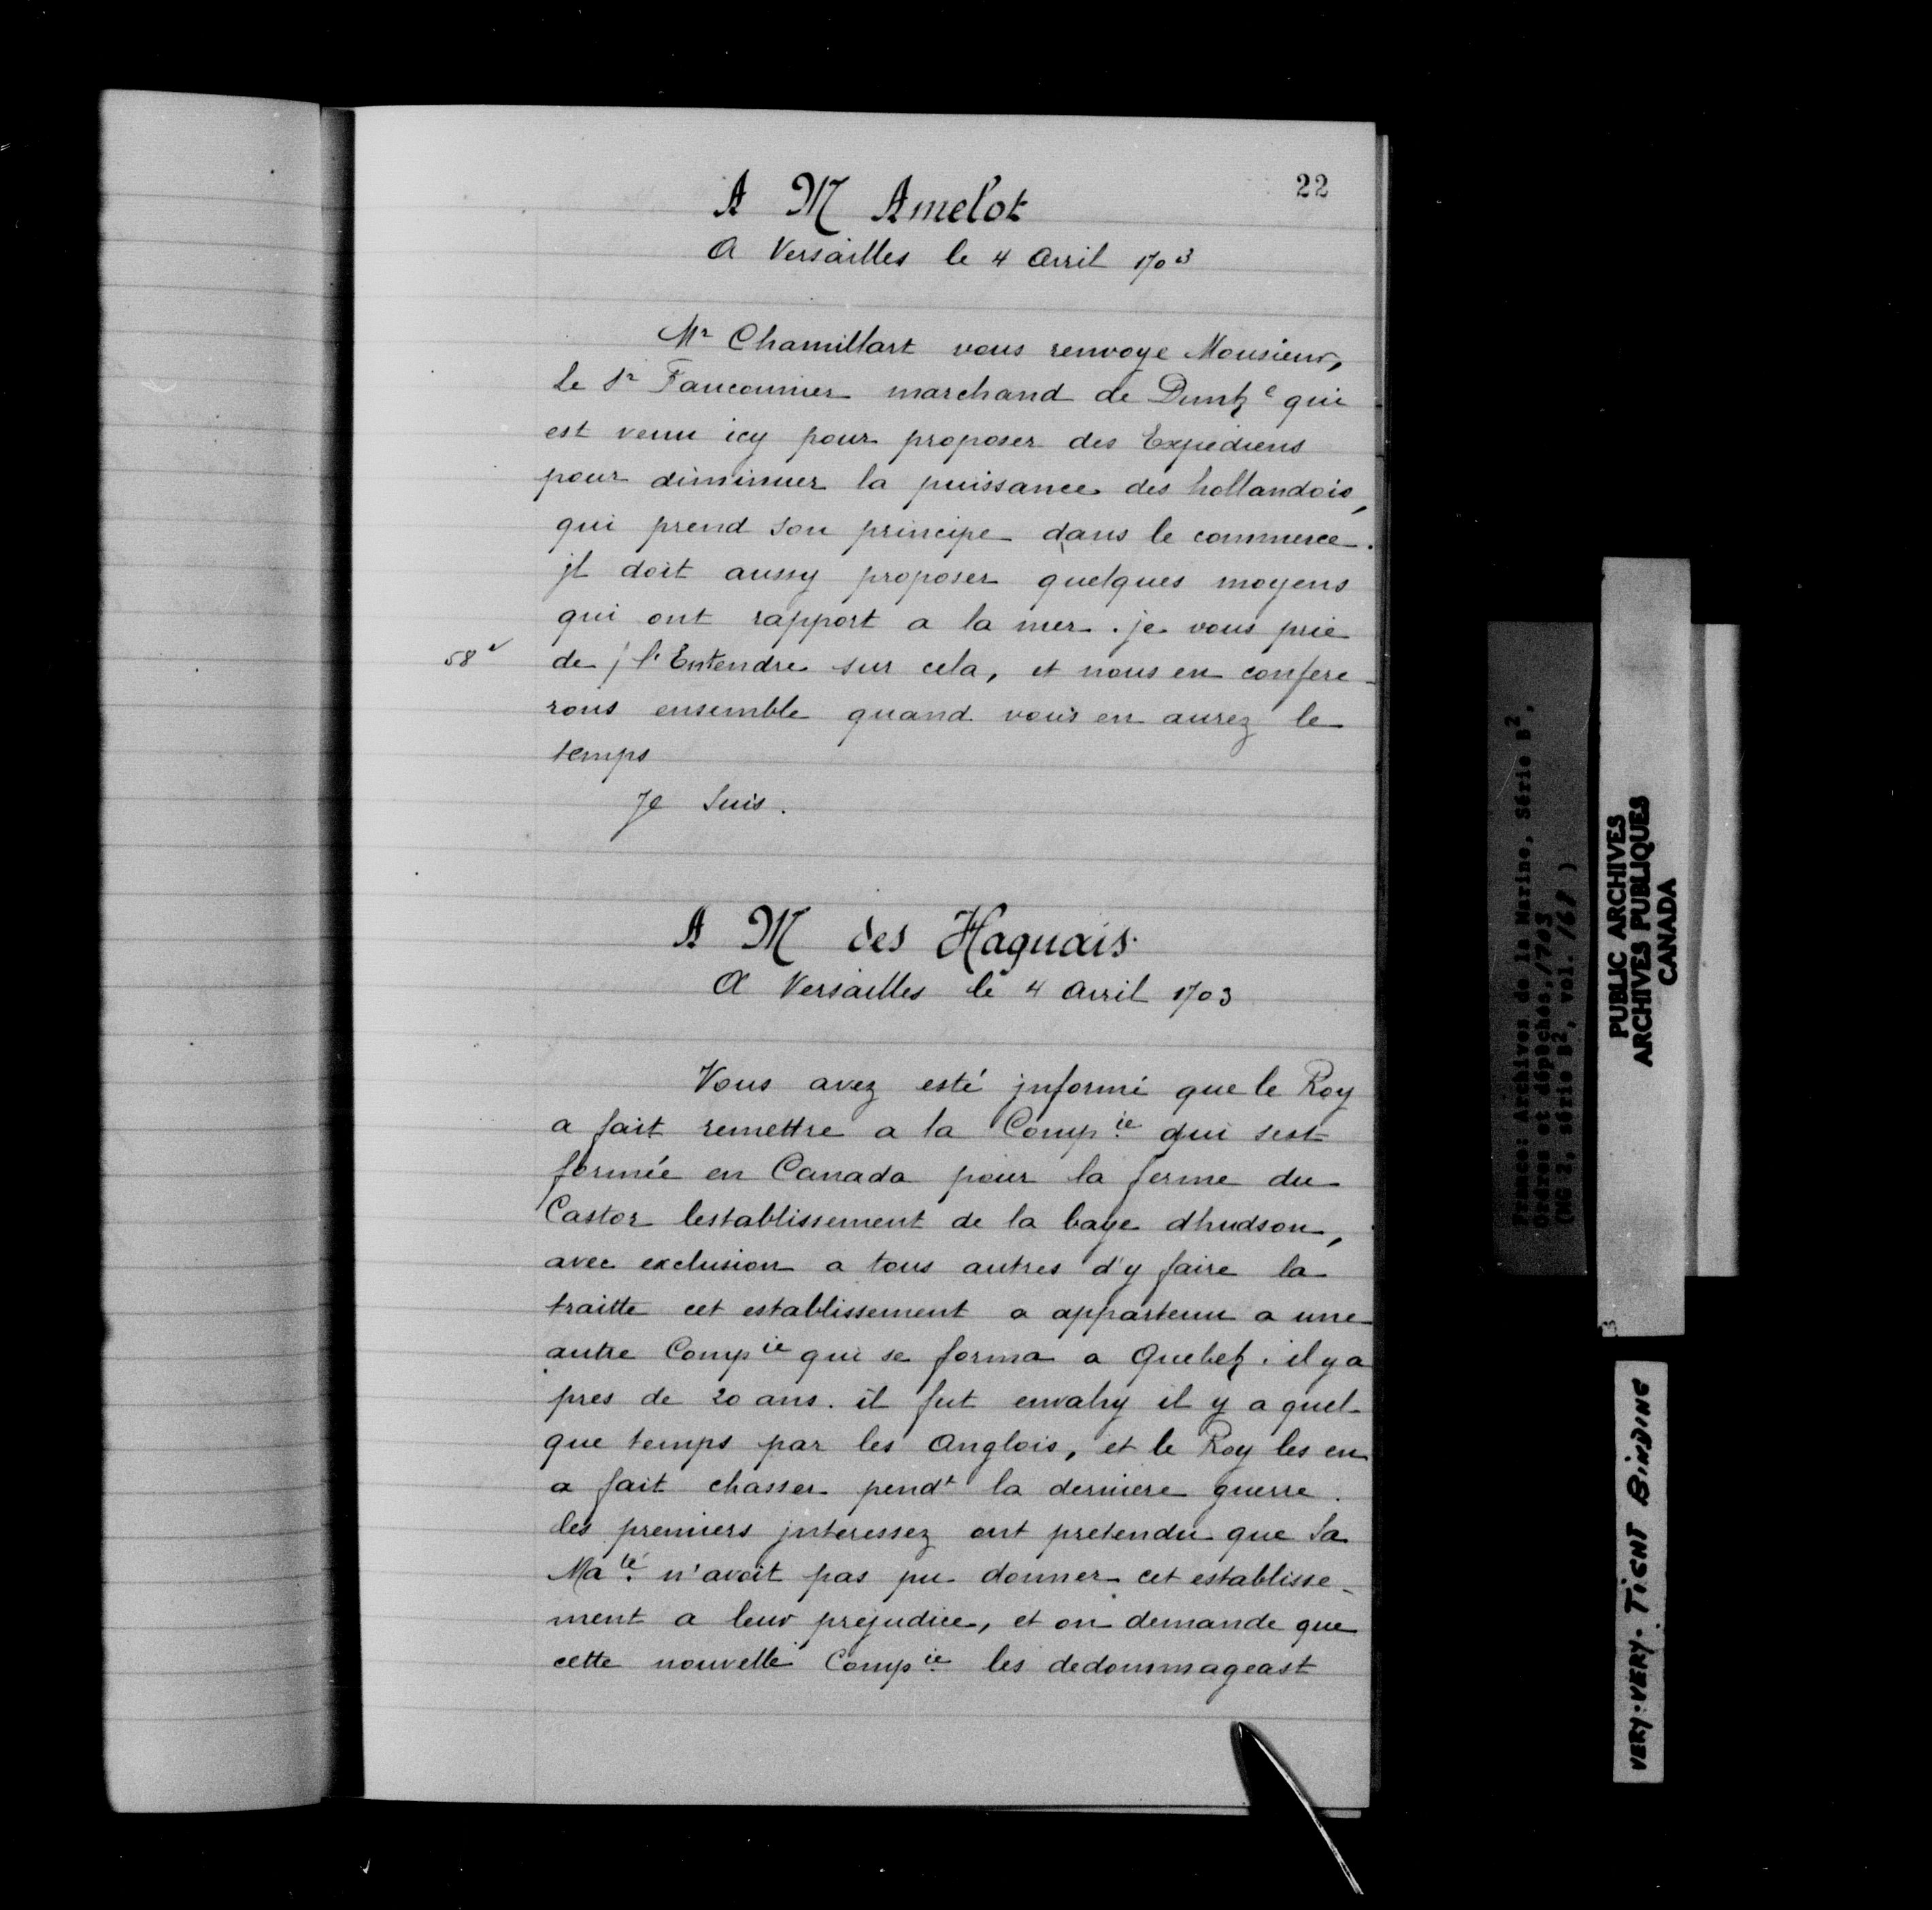 22
A M Amelot
A Versailles le 4 Avril 1703
Mr Chamillart vous renvoye Monsieur,
le Sr Fauconnier marchand de Dunk e qui
est venu icy pour proposer des Expediens
pour diminuer la puissance des hollandois,
qui prend son principe dans le commerce.
jl doit aussy proposer quelques moyens
qui ont rapport a la mer. je vous prie
58 v de / l'Entendre sur cela, et nous en confere-
rons ensemble quand vous en aurez le
temps
Je Suis.
A M des Haguais
A Versailles le 4 Avril 1703
Vous avez esté jnformé que le Roy
a fait remettre a la Comp ie qui sest
formée en Canada pour la ferme du
Castor lestablissement de la baye dhudson,
avec exclusion a tous autres d'y faire la
traitte cet establissement a appartenu a une
autre Comp ie qui se forma a Quebek. il y a
pres de 20 ans. il fut envahy il y a quel-
que temps par les Anglois, et le Roy les en
a fait chasser pendt la derniere guerre.
les premiers jnteressez ont pretendu que Sa
Ma té n'avoit pas pu donner cet establisse-
ment a leur prejudice, et on demande que
cette nouvelle Comp ie les dedommageast
France: Archives de la Marine, Série B2,
Ordres et dépêches, 1703
(MG 2, série B2, vol. 168)
PUBLIC ARCHIVES
ARCHIVES PUBLIQUES
CANADA
3
VERY-VERY-TIGHT BINDING